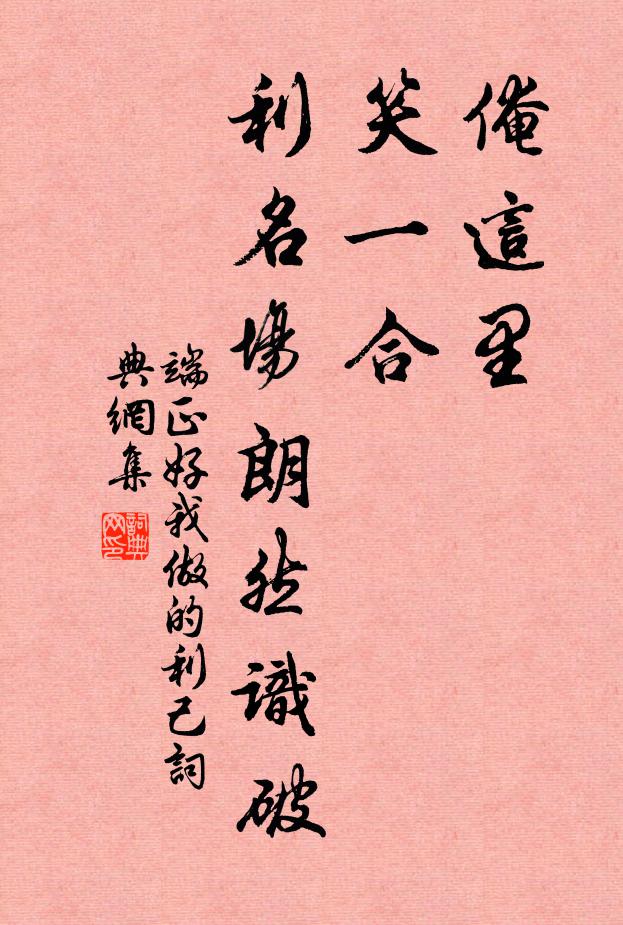 俺這里
笑一合
利名場朗然識破
端正好我做的利己詞
典網集
詞典
网印